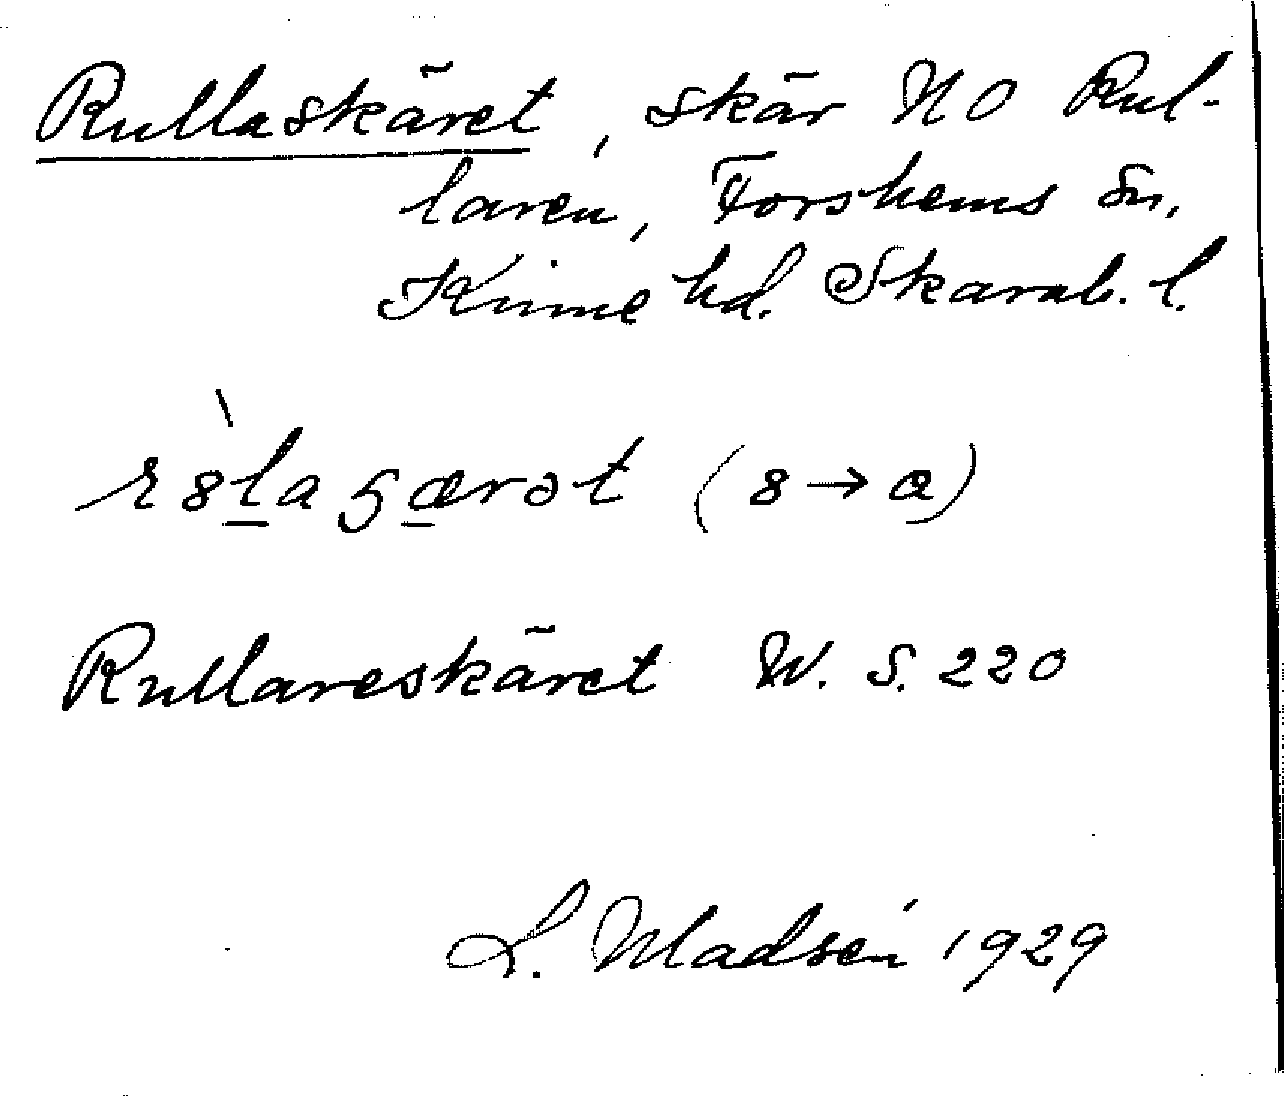 Rullaskäret, skär NO Rul-
laren, Forshems sn,
Kinne hd. Skarab. l.
r8̀l̲aʂæ̲rət (8→a)
Rullareskäret W. S. 220
L. Madsén 1929